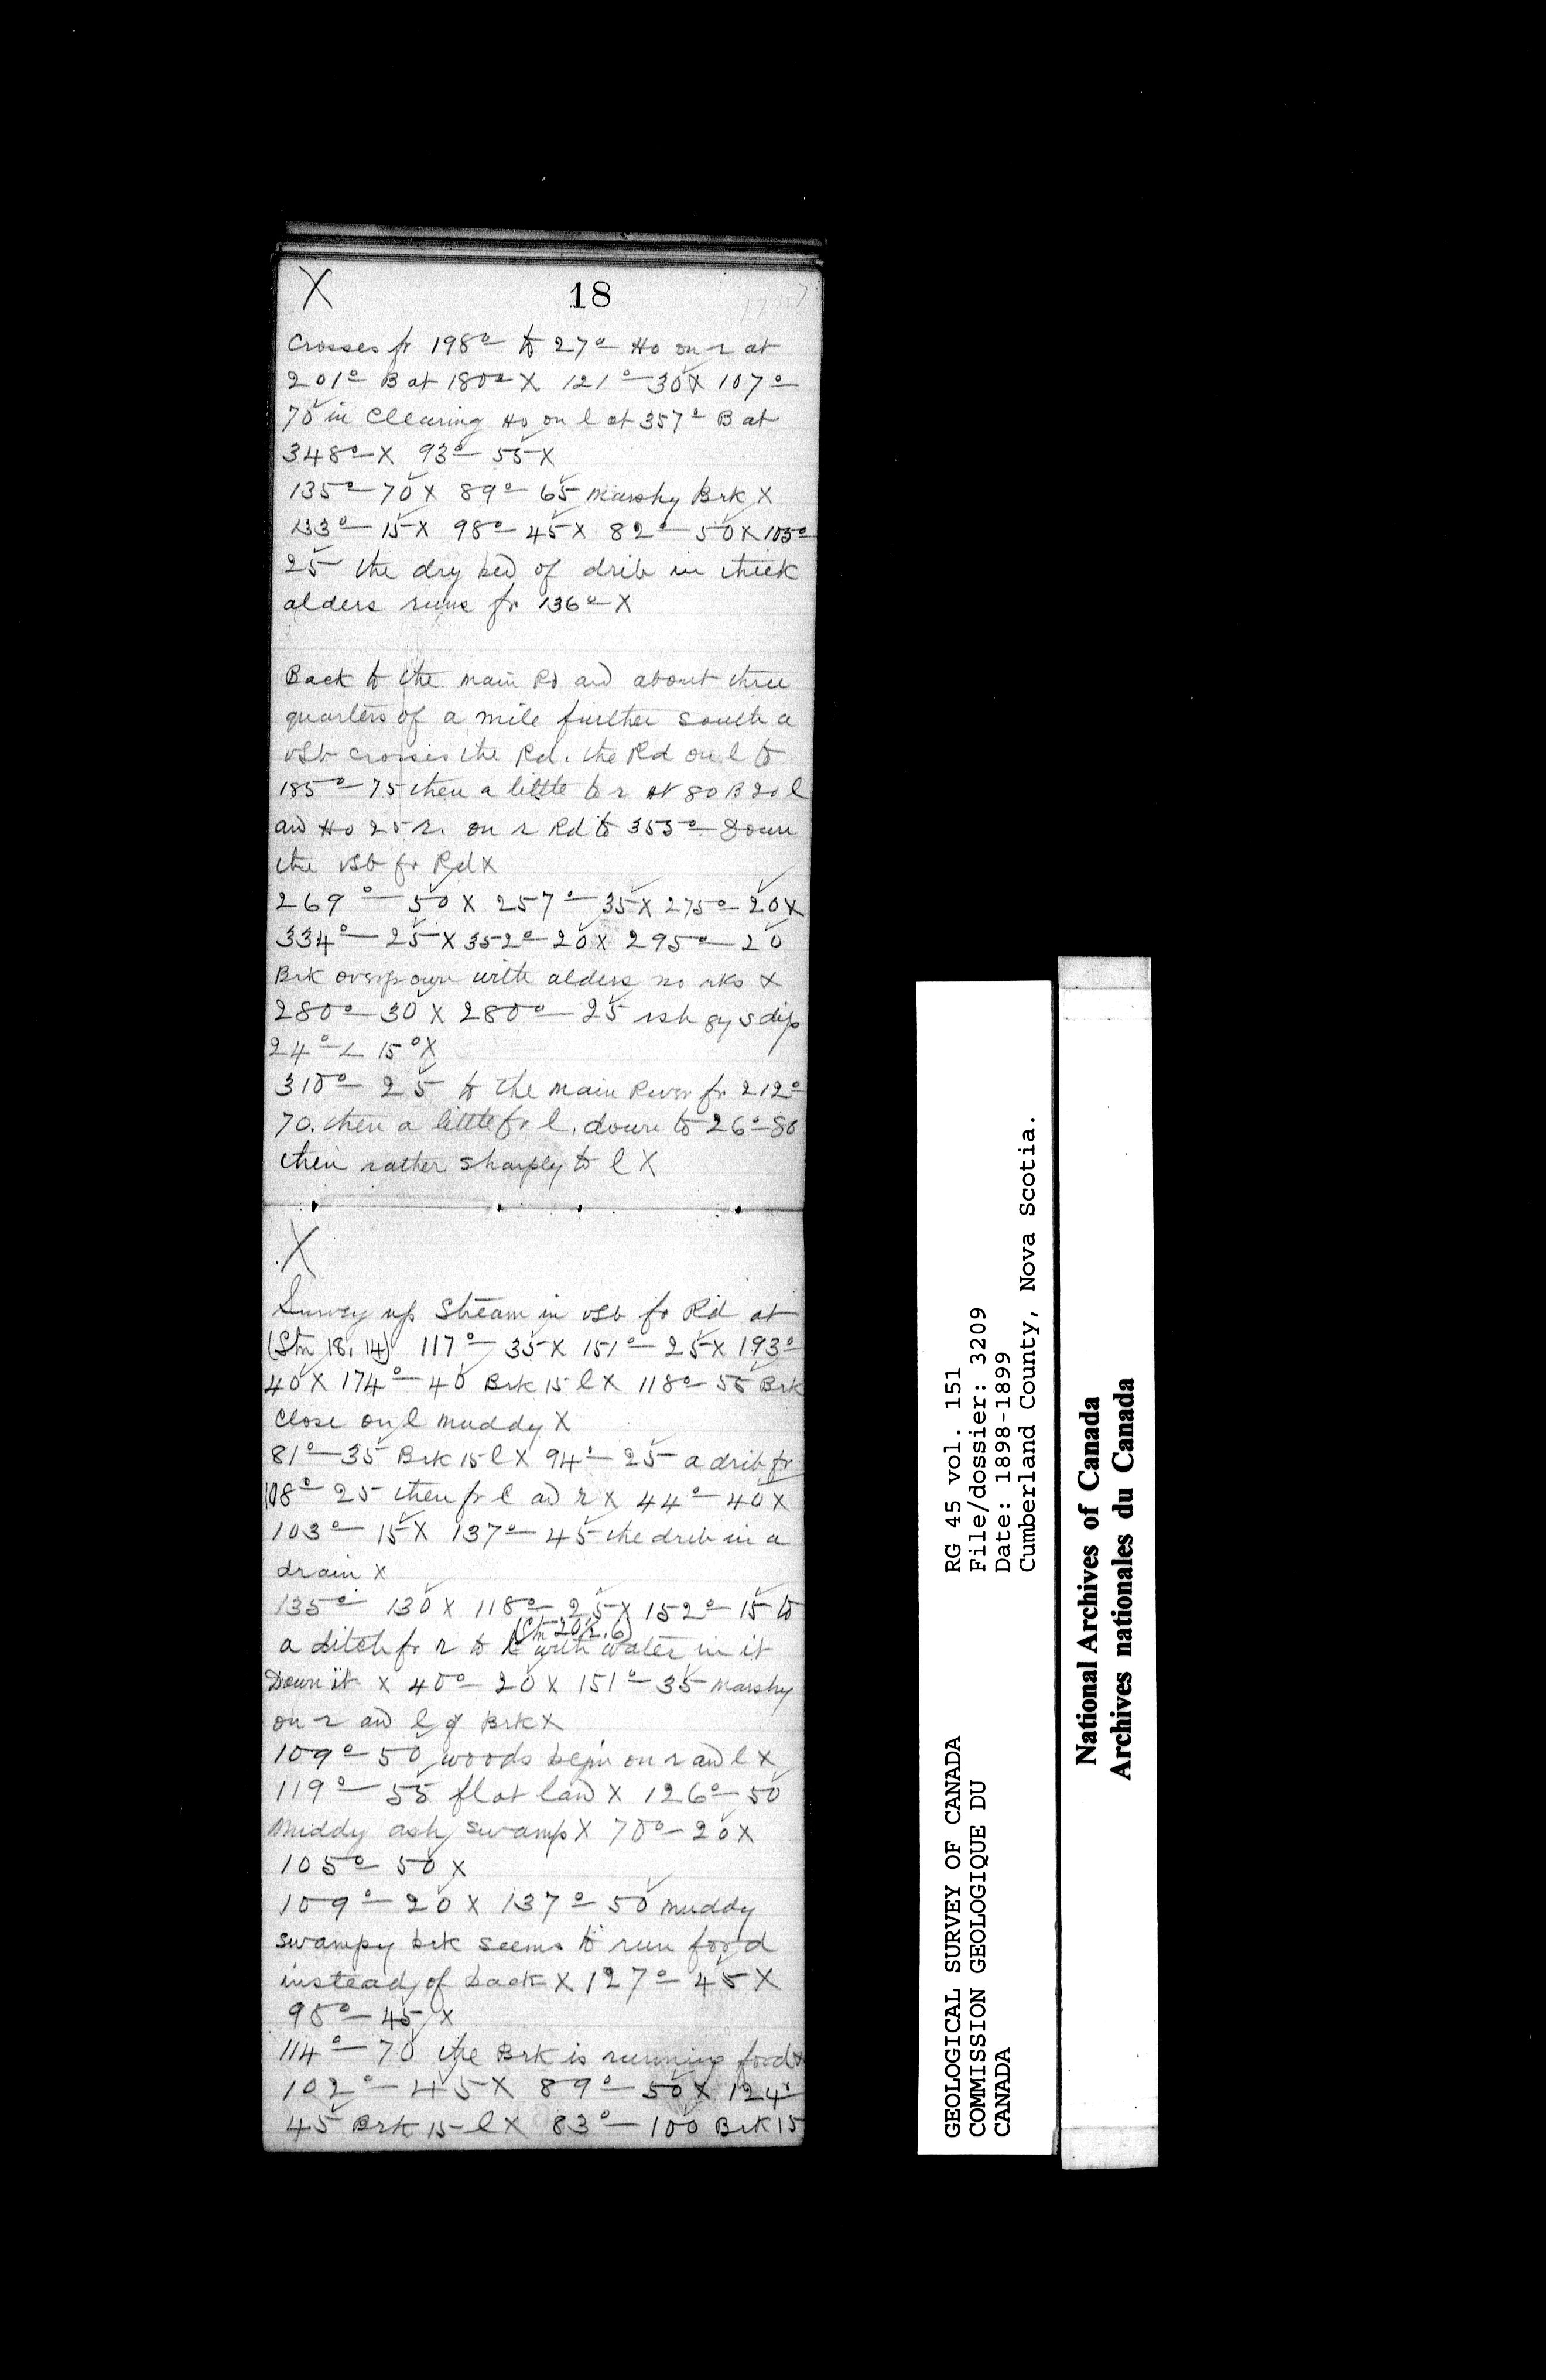 X 18
Crosses fr 198° to 27° Ho on r at
201° B at 180° X 121°-30 X 107°
70 in Clearing Ho on l at 357° B at
348° X 93°-55 X
135°-70 X 89°-65 Marshy Brk X
133°-15 X 98°-45 X 82°-50 X 105°
25 the dry bed of drib in thick
alders runs fr 136° X
Back to the main Rd and about three
quarters of a mile further south a
vsb crosses the Rd. the Rd on l to
185°-75 then a little to r at 80 B 20 l
and Ho 25 r. on r Rd to 353° Down
the vsb fr Rd X
269°-50 X 257°-35 X 275°-20 X
334°-25 X 352°-20 X 295°-20
Brk overgrown with alders no rks X
280°-30 X 280°-25 rsh gy s dip
24° < 15° X
310°-25 to the main River fr 212°
70. then a little fr l. down to 26°-80
then rather sharply to l X
X
Survey up Stream in vsb fr Rd at
(Stn 18, 14) 117°-35 X 151°-25 X 193°
40 X 174°-40 Brk 15 l X 118°-55 Brk
Close on l muddy X
81°-35 Brk 15 l X 94°-25 a drib fr
108°-25 then fr l and r X 44°-40 X
103°-15 X 137°-45 the drib in a
drain X
135°-130 X 118°-25 X 152°-15 to
(Stn 20/2.6)
a ditch fr r to l with water in it
Down it X 40°-20 X 151°-35 Marshy
on r and l of Brk X
109°-50 woods begin on r and l X
119°-55 flat land X 126°-50
Muddy ash swamp X 70°-20 X
105°-50 X
109°-20 X 137°-50 muddy
swampy brk seems to run ford
instead of back X 127°-45 X
95°-45 X
114°-70 the Brk is running ford X
102°-45 X 89°-50 X 124°
45 Brk 15 l X 83°-100 Brk 15
GEOLOGICAL SURVEY OF CANADA
COMMISSION GEOLOGIQUE DU
CANADA
RG 45 vol. 151
File/dossier: 3209
Date: 1898-1899
Cumberland County, Nova Scotia.
National Archives of Canada
Archives nationales du Canada